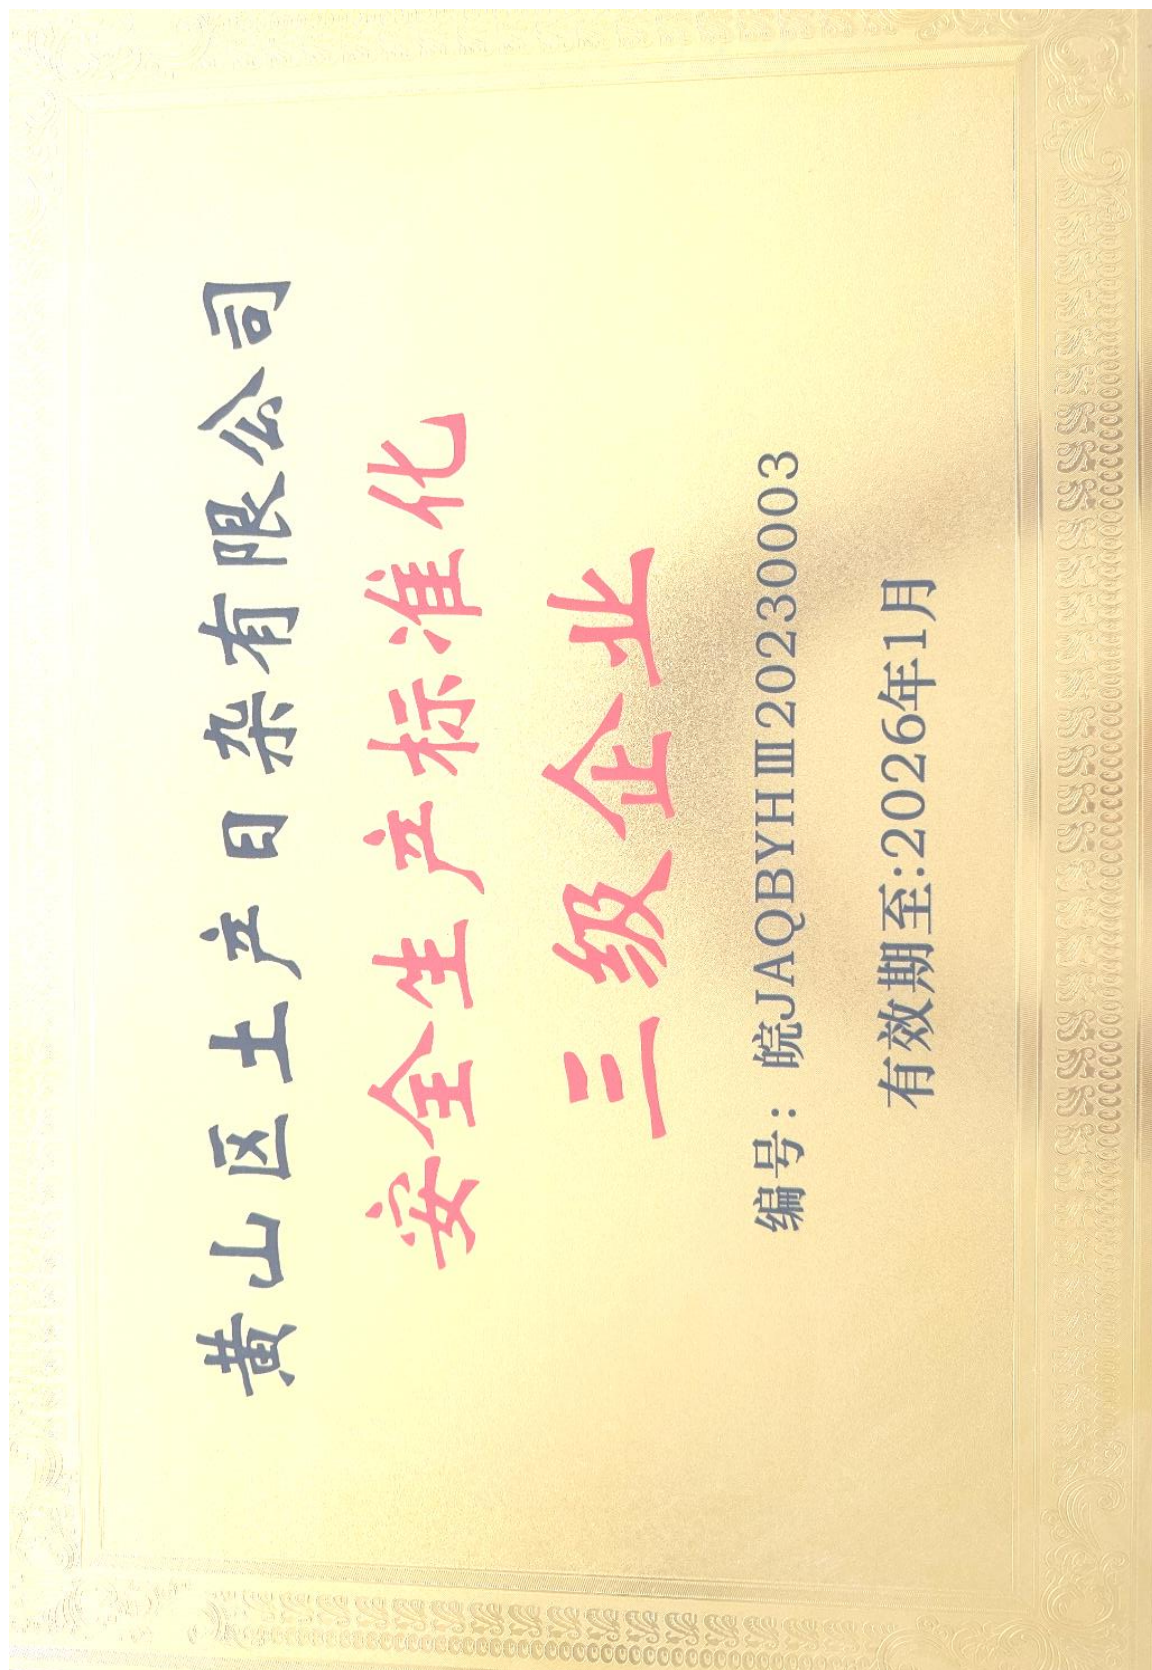 黄山区土产日杂有限公司
安全生产标准化
三级企业
编号：皖JAQBYHⅢ20230003
有效期至:2026年1月